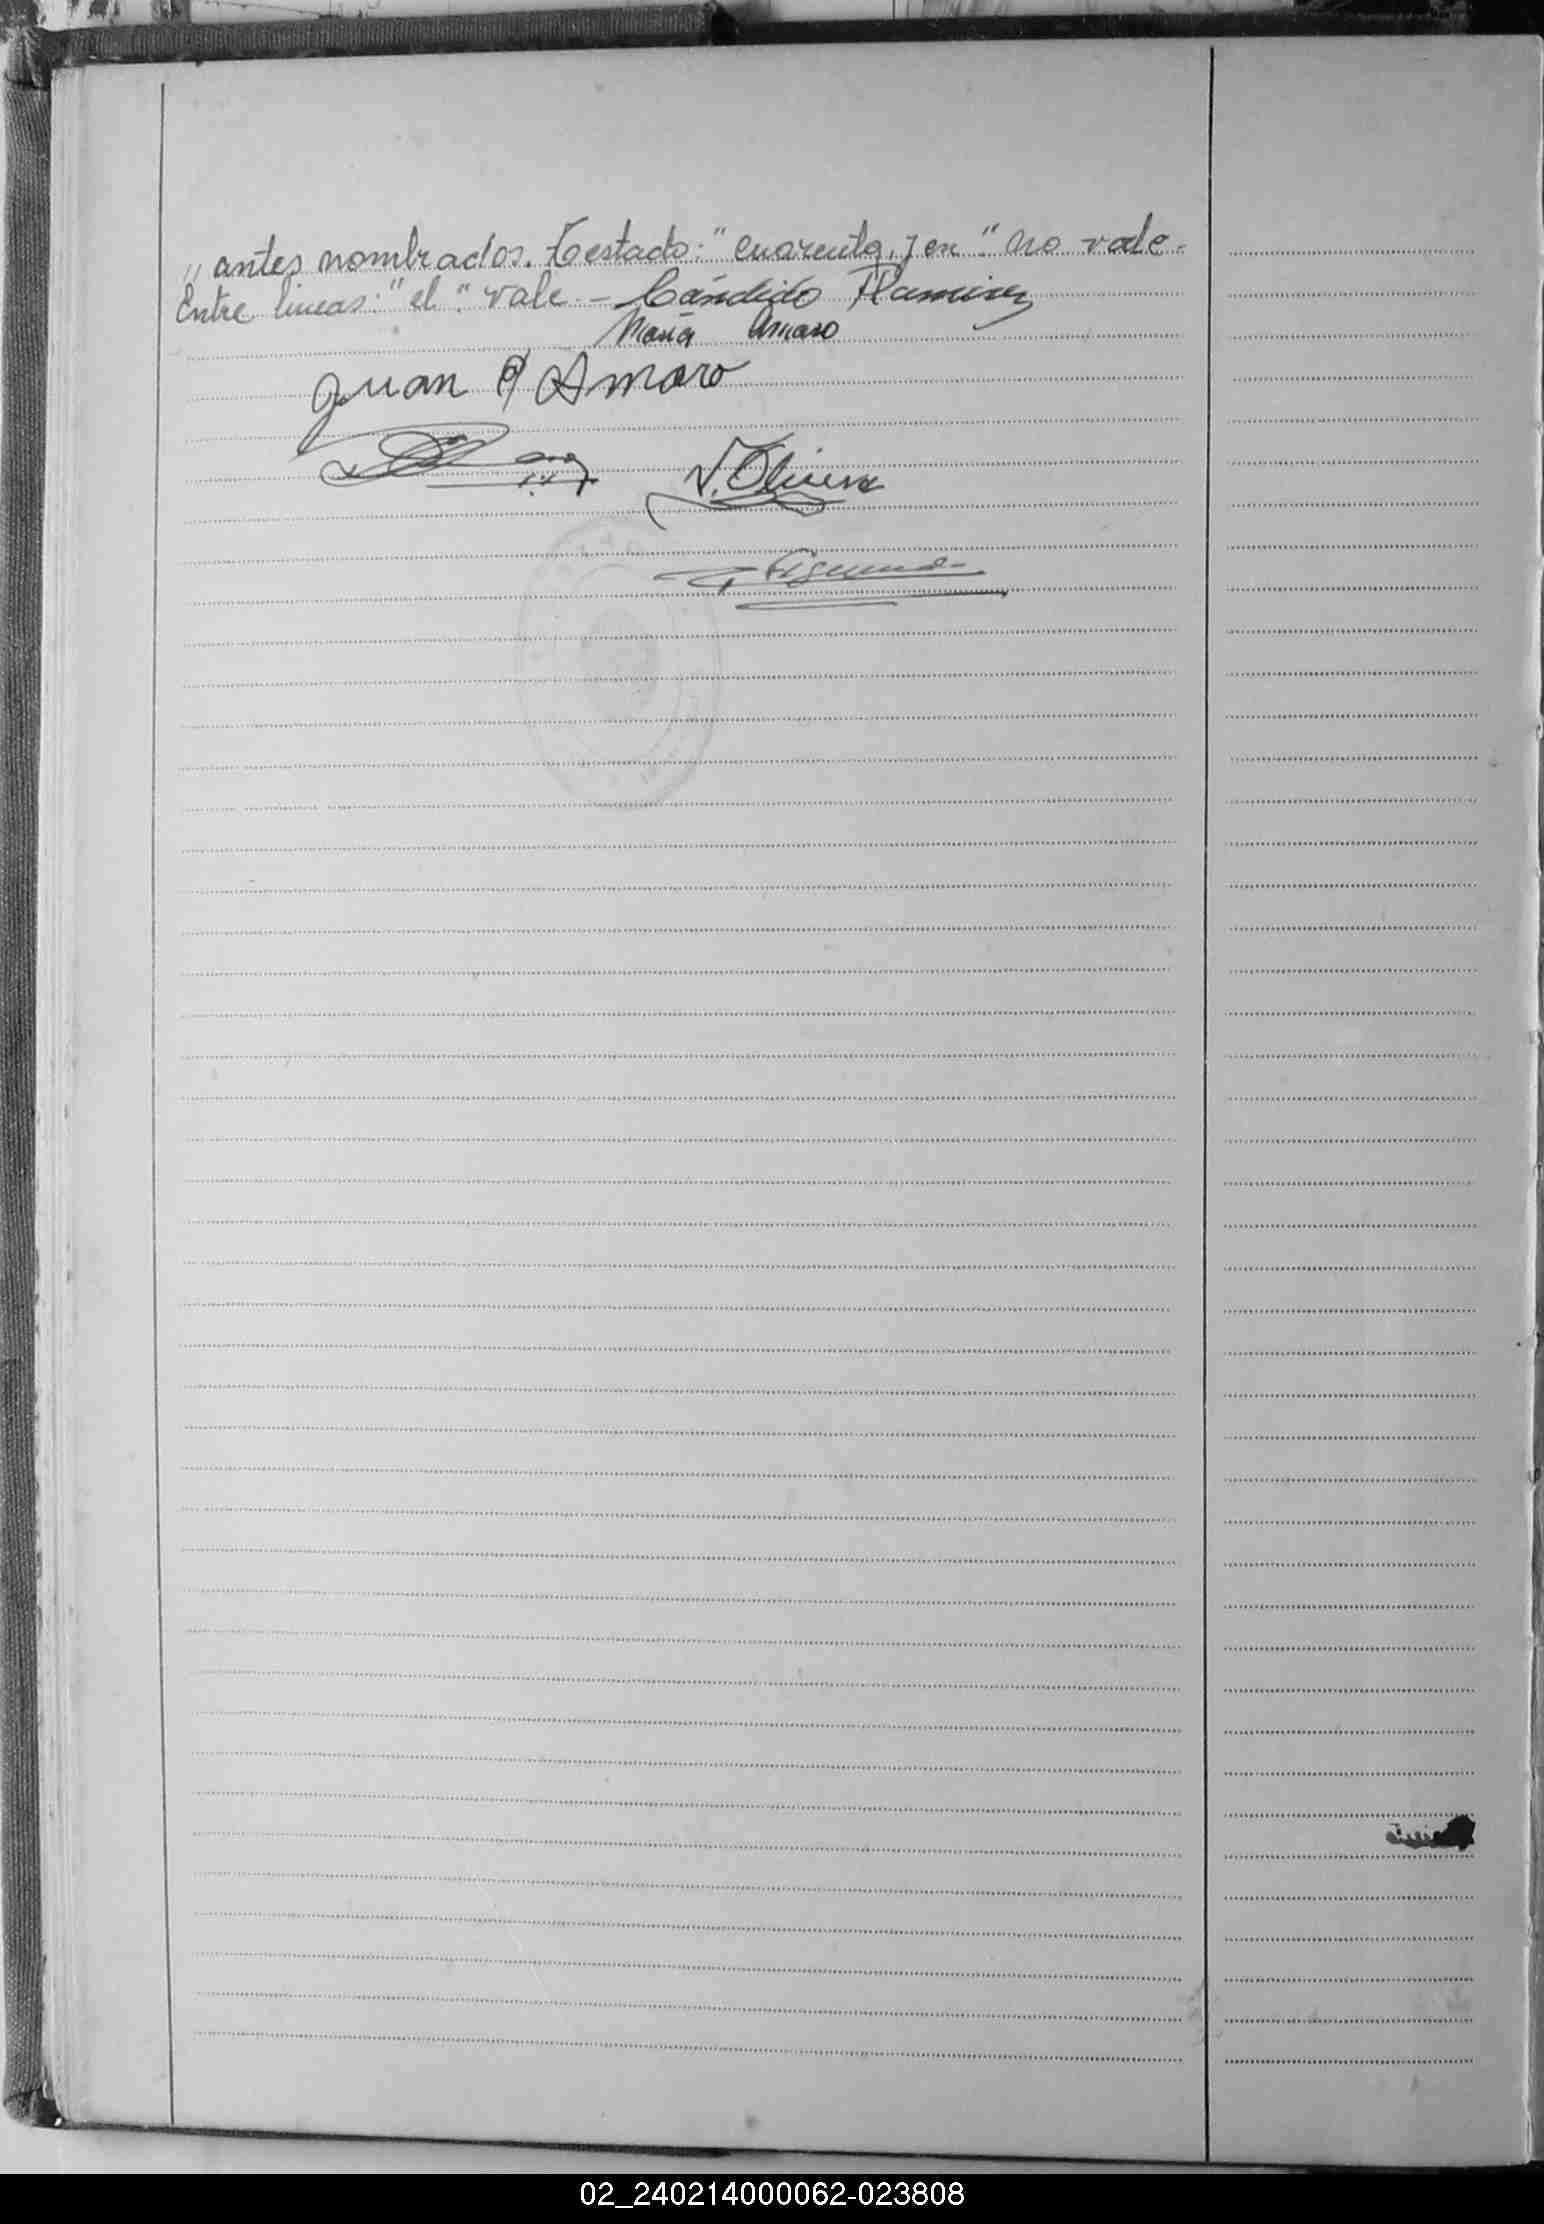 „ antes nombrados. Testado: "cuarenta, y en". no vale.
Entre lineas: "el". vale - Cándido Ramirez
María Amaro
Juan P Amaro
V. Olivera
02_240214000062-023808